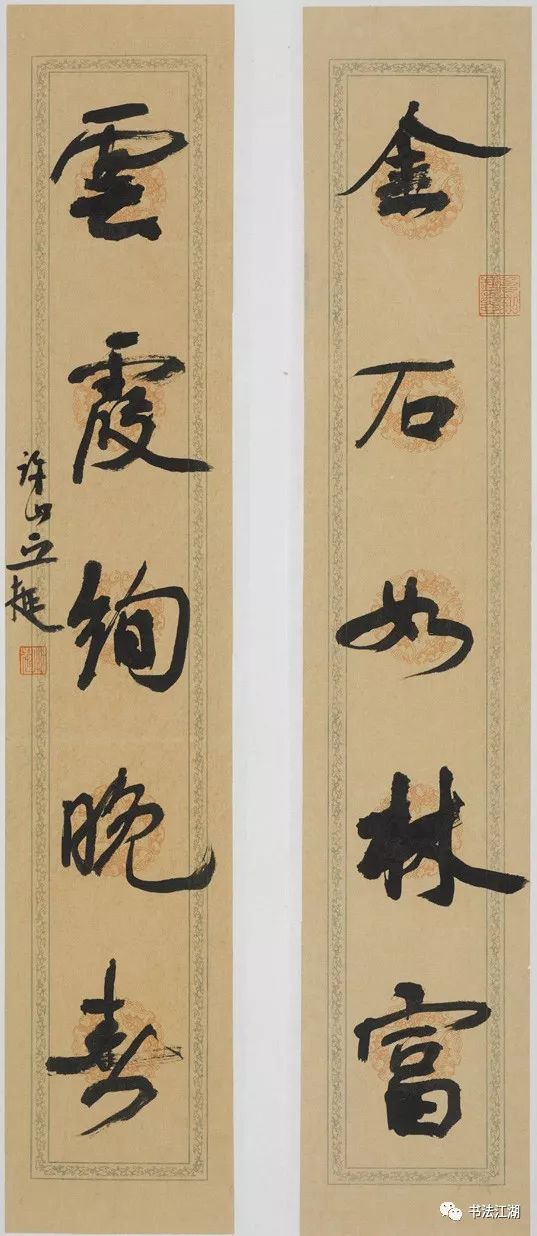 金石如林富
雲霞絢晚
許山立挺
书法江湖